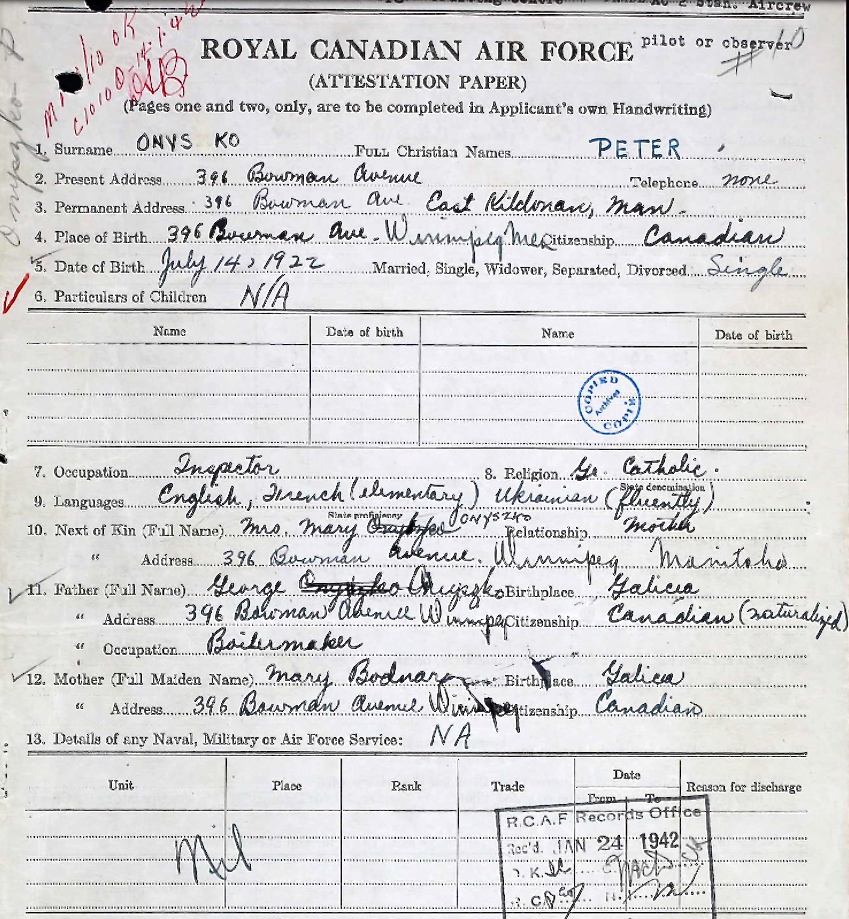 Aircrew
pilot or observer
# 10
ROYAL CANADIAN AIR FORCE
(ATTESTATION PAPER)
(Pages one and two, only, are to be completed in Applicant's own Handwriting)
1. Surname ONYS KO Full Christian Names PETER
2. Present Address 396 Bowman Avenue Telephone none
3. Permanent Address 396 Bowman Ave East Kildonan, Man.
4. Place of Birth 396 Bowman Ave. Winnipeg Citizenship Canadian
5. Date of Birth July 14, 1922 Married, Single, Widower, Separated, Divorced Single
6. Particulars of Children N/A
Name Date of birth Name Date of birth
COPIED Archives COPIE
7. Occupation Inspector 8. Religion Gr. Catholic.
State denomination
9. Languages English, French (elementary) Ukrainian (fluently)
State proficiency
10. Next of Kin (Full Name) Mrs. Mary ONYSZKO Relationship Mother
" Address 396 Bowman Avenue. Winnipeg Manitoba
11. Father (Full Name) George Onyszko Birthplace Galicia
" Address 396 Bowman Avenue Winnipeg Citizenship Canadian (naturalized)
" Occupation Boilermaker
12. Mother (Full Maiden Name) Mary Bodnar Birthplace Galicia
" Address 396 Bowman Avenue Winnipeg Citizenship Canadian
13. Details of any Naval, Military or Air Force Service: NA
Unit Place Rank Trade Date From To Reason for discharge
Nil
R.C.A.F Records Office
Rec'd. JAN 24 1942